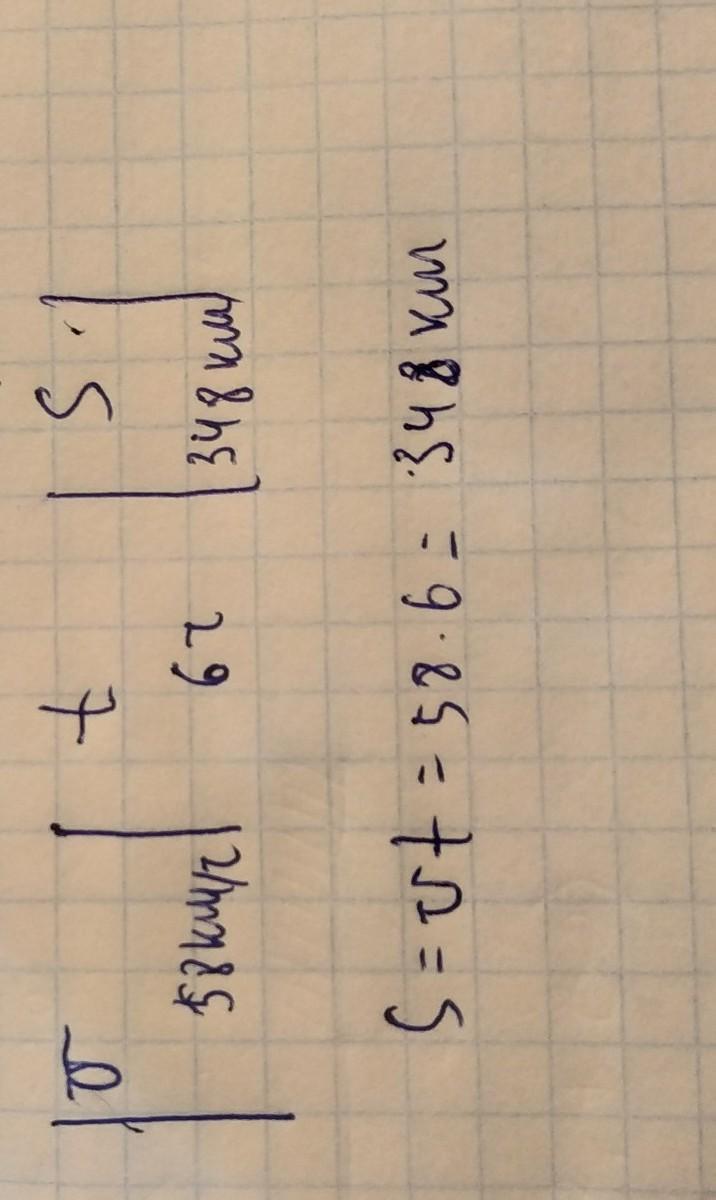 υ t S
58км/г 6г 348км
S = υt = 58·6 = 348 км